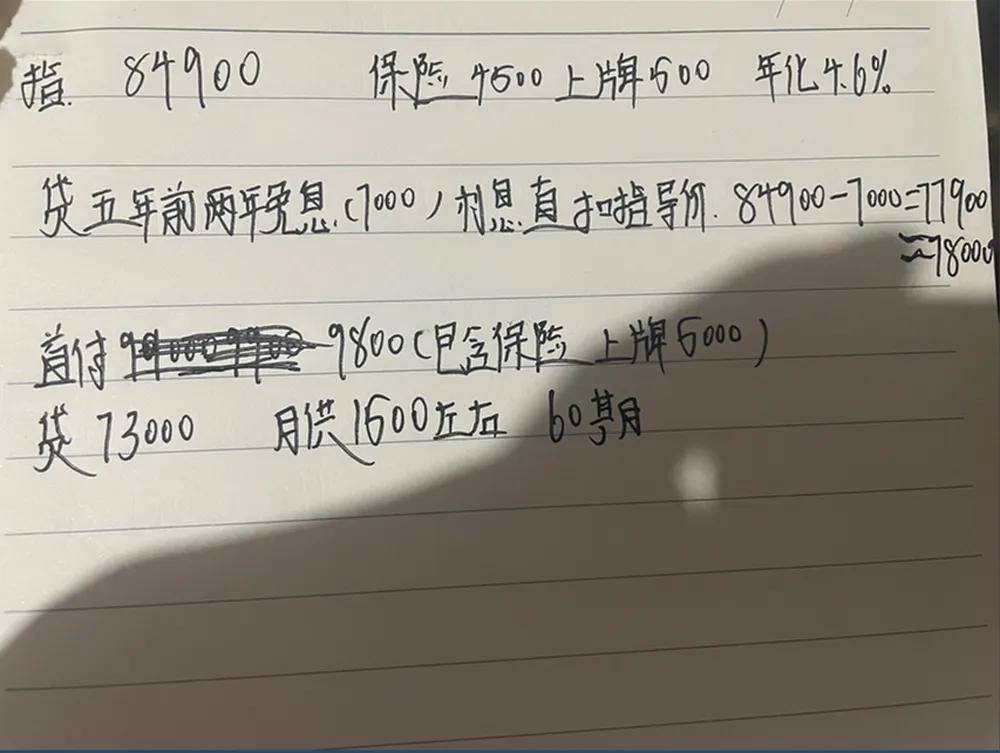 指. 84900 保险 4500 上牌500 年化4.6%
贷五年前两年免息(7000)利息直扣指导价. 84900-7000=77900
≈78000
首付 9800(包含保险 上牌5000)
贷73000 月供1500左右 60期